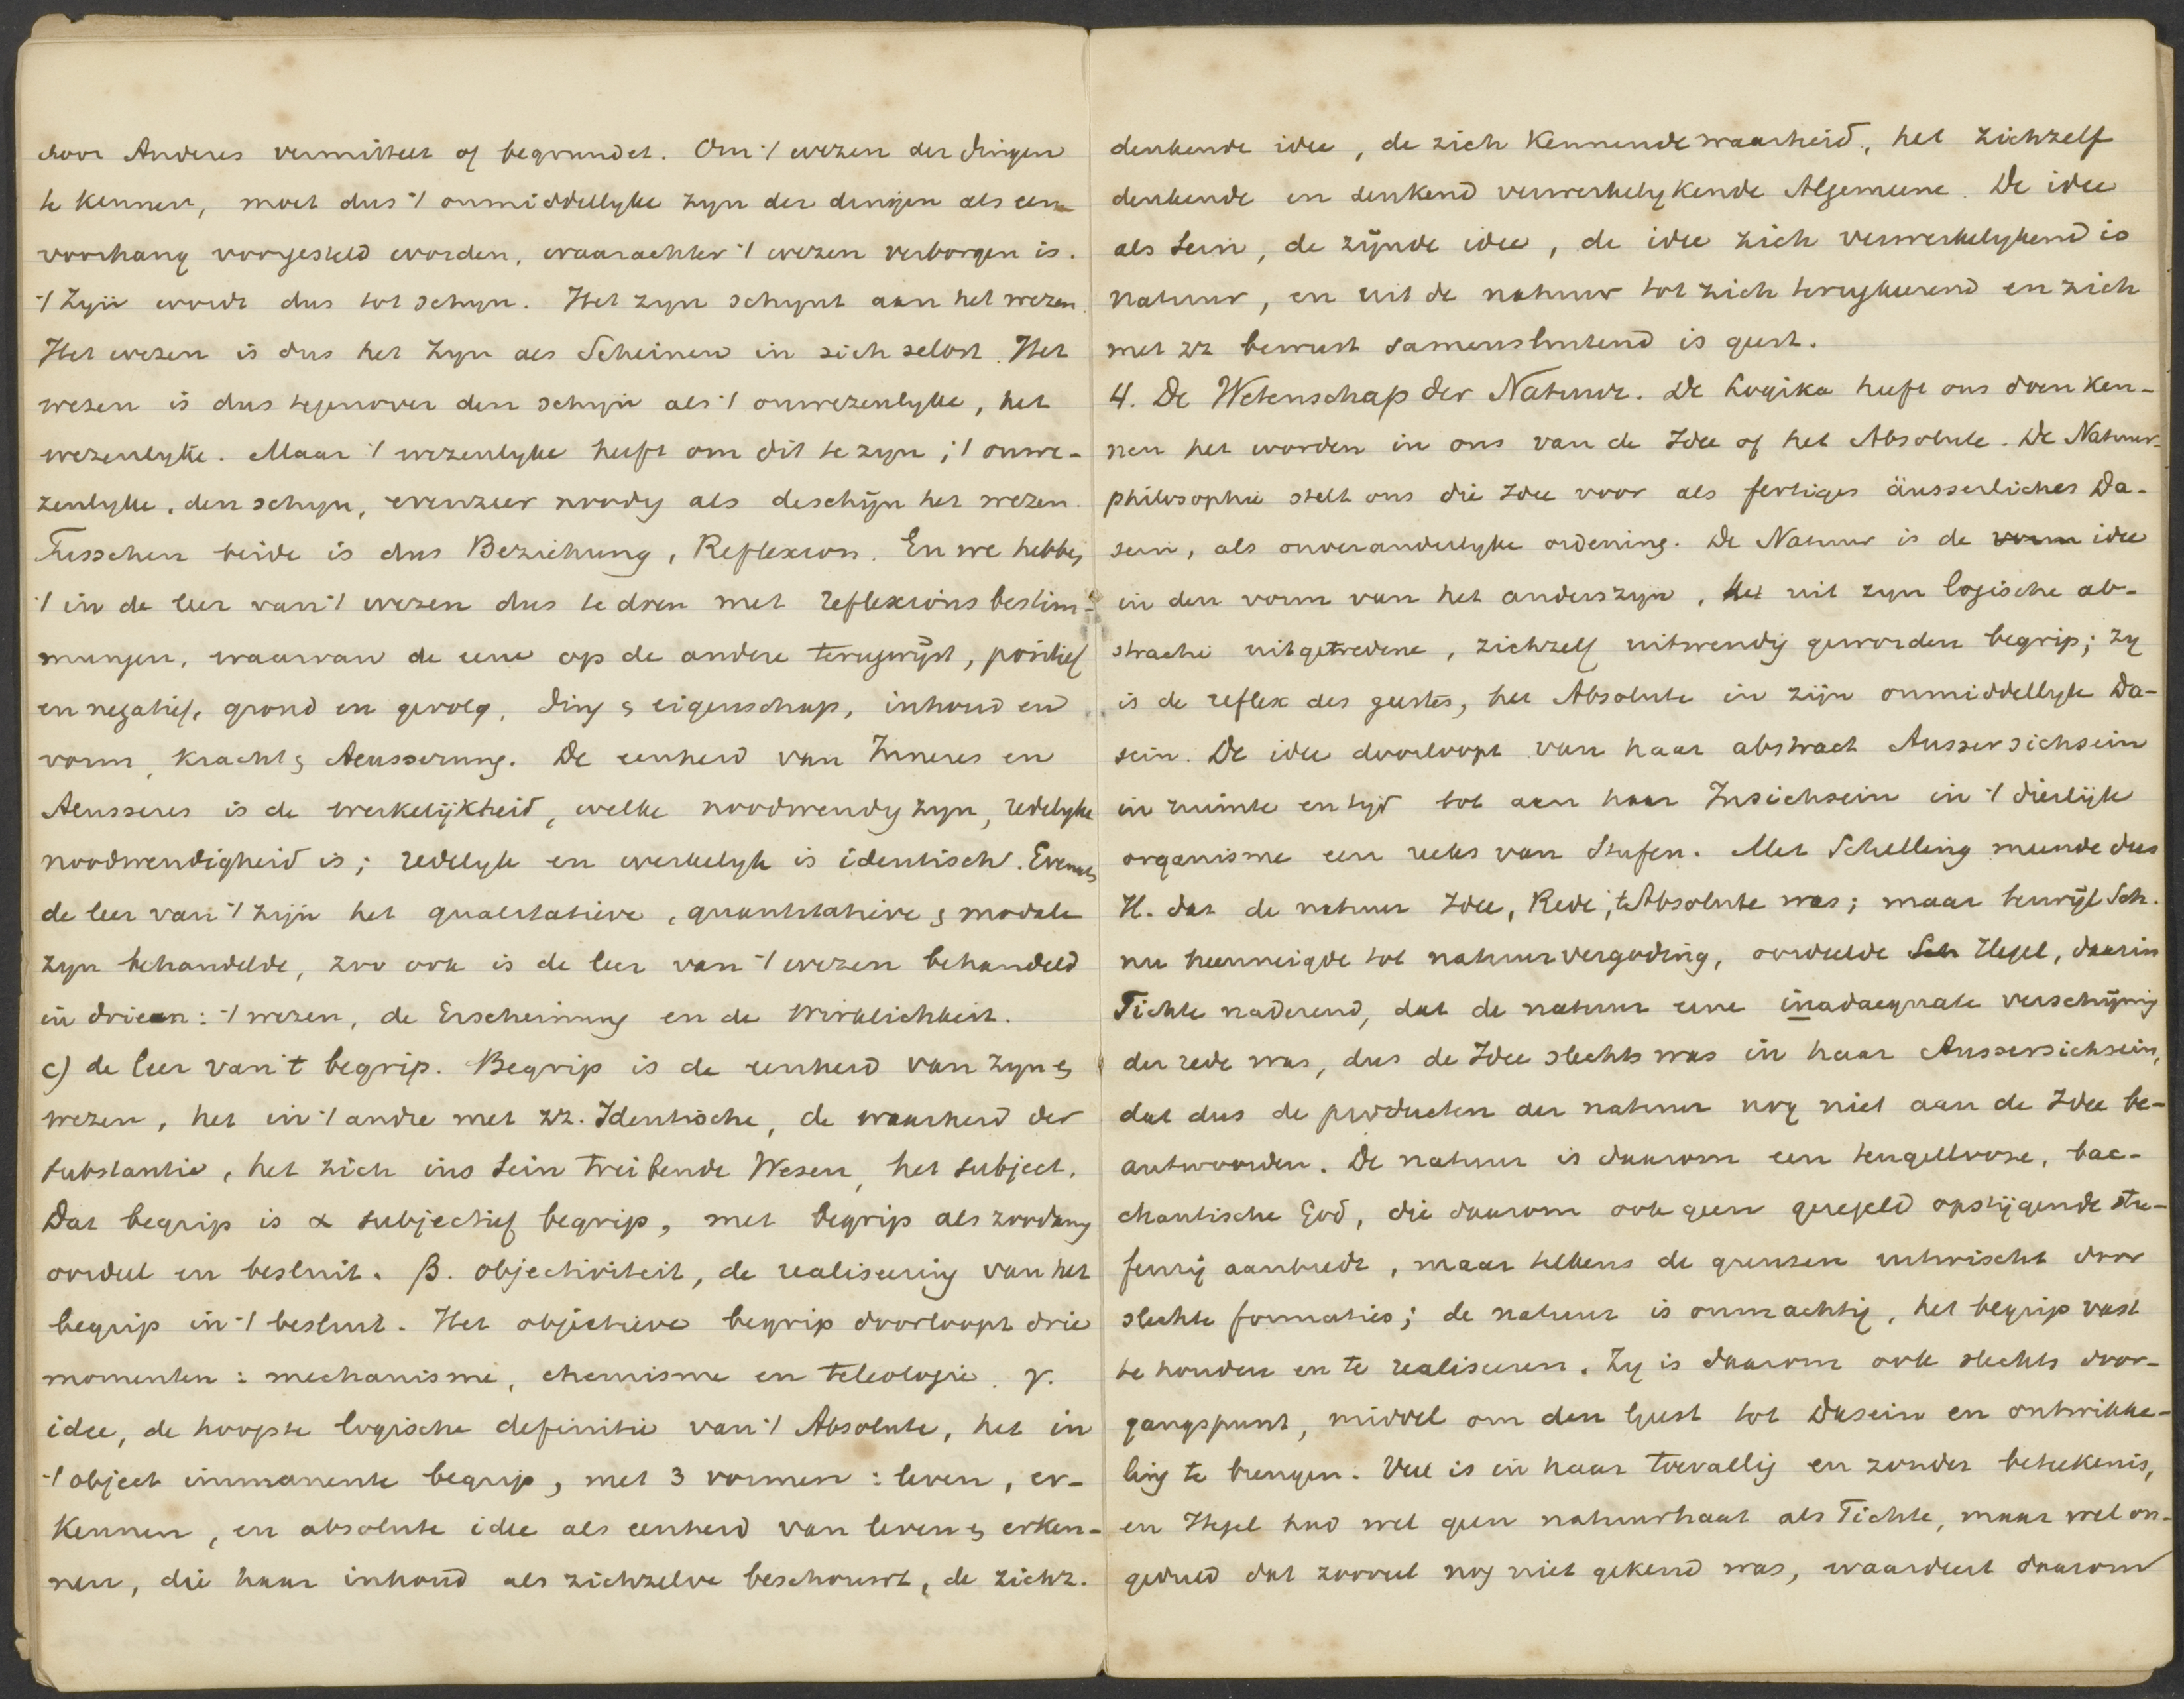 door Anderes vermittelt of begrundet. Om 't wezen der dingen
te kennen, moet dus 't onmiddellyke zyn der dingen als een
voorhang voorgesteld worden, waarachter 't wezen verborgen is.
't Zyn wordt dus tot schyn. Het zyn schynt aan het wezen.
Het wezen is dus het Zyn als Scheinen in sich selbst. Het
wezen is dus tegenover den schyn als 't onwezenlyke, het
wezenlyke. Maar 't wezenlyke heeft om dit te zyn, 't onwe-
zenlyke, den schyn, evenzeer noodig als de schijn het wezen.
Tusschen beide is dus Beziehung, Reflexion. En we hebben
't in de leer van 't wezen dus te doen met Reflexionsbestim-
mungen, waarvan de eene op de andere terugwijst, positief
en negatief, grond en gevolg, ding & eigenschap, inhoud en
vorm, kracht & Aeusserung. De eenheid van Inneres en
Aeusseres is de werkelijkheid, welke noodwendig zyn, redelyke
noodwendigheid is; redelyk en werkelyk is identisch. Evenals
de leer van 't zijn het qualitatieve, quantitatieve & modale
zyn behandelde, zoo ook is de leer van 't wezen behandeld
in drieen: 't wezen, de Erscheinung en de Wirklichkeit.
c) de leer van 't begrip. Begrip is de eenheid van zyn &
wezen, het in 't andre met zz. Identische, de waarheid der
substantie, het zich ins Sein treibende Wesen, het subject.
Dat begrip is α subjectief begrip, met begrip als zoodanig
oordeel en besluit. β. objectiviteit, de realiseering van het
begrip in 't besluit. Het objectieve begrip doorloopt drie
momenten: mechanisme, chemisme en teleologie. γ.
idee, de hoogste logische definitie van 't Absolute, het in
't object immanente begrip, met 3 vormen: leven, er-
kennen, en absolute idee als eenheid van leven & erken-
nen, die haar inhoud als zichzelve beschouwt, de zichz.
denkende idee, de zich kennende waarheid, het zichzelf
denkende en denkend verwerkelykende Algemeene. De idee
als Sein, de zijnde idee, de idee zich verwerkelykend is
natuur, en uit de natuur tot zich terugkeerend en zich
met zz bewust samensluitend is geest.
4. De Wetenschap der Natuur. De Logika heeft ons doen ken-
nen het worden in ons van de Idee of het Absolute. De Natuur-
philosophie stelt ons die Idee voor als fertiges äusserliches Da-
sein, als onveranderlyke ordening. De Natuur is de vorm idee
in den vorm van het anderszyn, het uit zyn logische ab-
stractie uitgetredene, zichzelf uitwendig geworden begrip; zy
is de reflex des geestes, het Absolute in zijn onmiddellyk Da-
sein. De idee doorloopt van haar abstract Aussersichsein
in ruimte en tijd tot aan haar Insichsein in 't dierlijk
organisme een reeks van Stufen. Met Schelling meende dus
H. dat de natuur Idee, Rede, 't Absolute was; maar terwijl Sch.
nu heenneigde tot natuurvergoding, oordeelde Sch Hegel, daarin
Fichte naderend, dat de natuur eene inadaequate verschijning
der rede was, dus de Idee slechts was in haar Aussersichsein,
dat dus de producten der natuur nog niet aan de Idee be-
antwoorden. De natuur is daarom een teugellooze, bac-
chantische God, die daarom ook geen geregeld opstijgende Stu-
fenrij aanbiedt, maar telkens de grenzen uitwischt door
slechte formaties; de natuur is onmachtig, het begrip vast
te houden en te realiseeren. Zy is daarom ook slechts door-
gangspunt, middel om den geest tot Dasein en ontwikke-
ling te brengen. Veel is in haar toevallig en zonder beteekenis,
en Hegel had wel geen natuurhaat als Fichte, maar wel on-
geduld dat zooveel nog niet gekend was, waardeert daarom